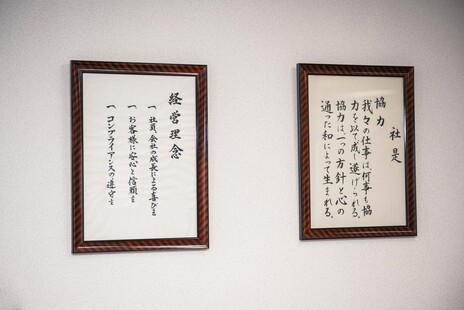 経営理念
一 社員、会社の成長による喜びを
一 お客様に安心と信頼を
一 コンプライアンスの遵守を
社是
協力
我々の仕事は、何事も協
力を以て成し遂げられる。
協力は一つの方針と心の
通った和によって生まれる。